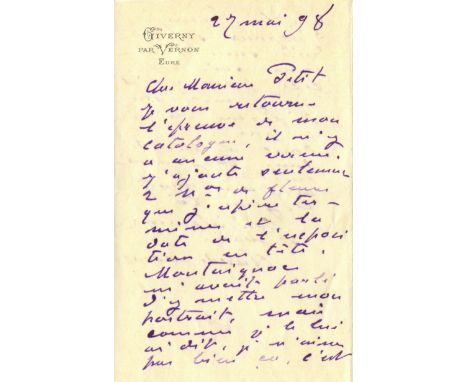 27 mai 98
GIVERNY
PAR VERNON
EURE
Cher Monsieur Petit
Je vous retourne
l'épreuve de mon
catalogue, il n'y
a aucune erreur.
j'ajoute seulement
2 Nos de fleurs
que j'espère ter-
miner et la
date de l'exposi
tion en tête.
Montaignac
m'avait parlé
d'y mettre mon
portrait, mais
comme je le lui
ai dit, je n'aime
pas bien ça, c'est